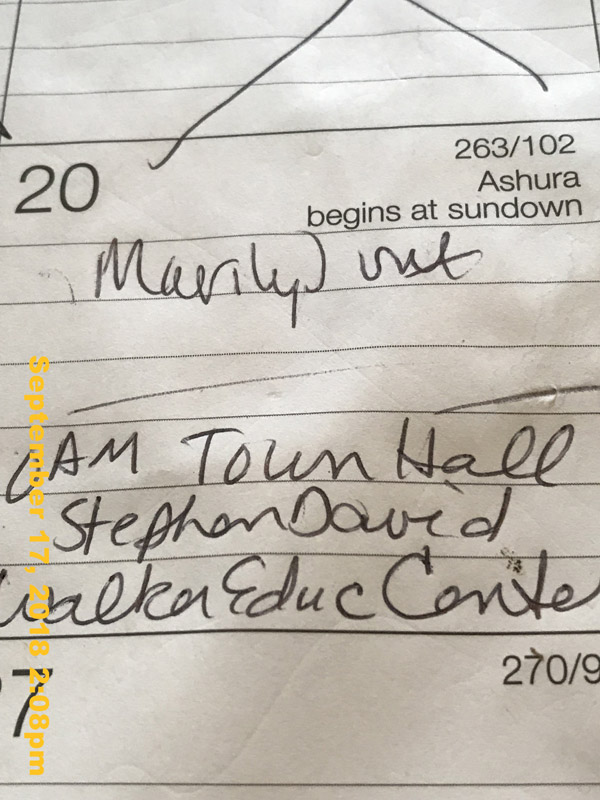 263/102
20
Ashura
begins at sundown
Marilyn visit
AM Town Hall
Stephen David
Walker Educ Cente
7
270/9
September 17, 2018 2:08pm